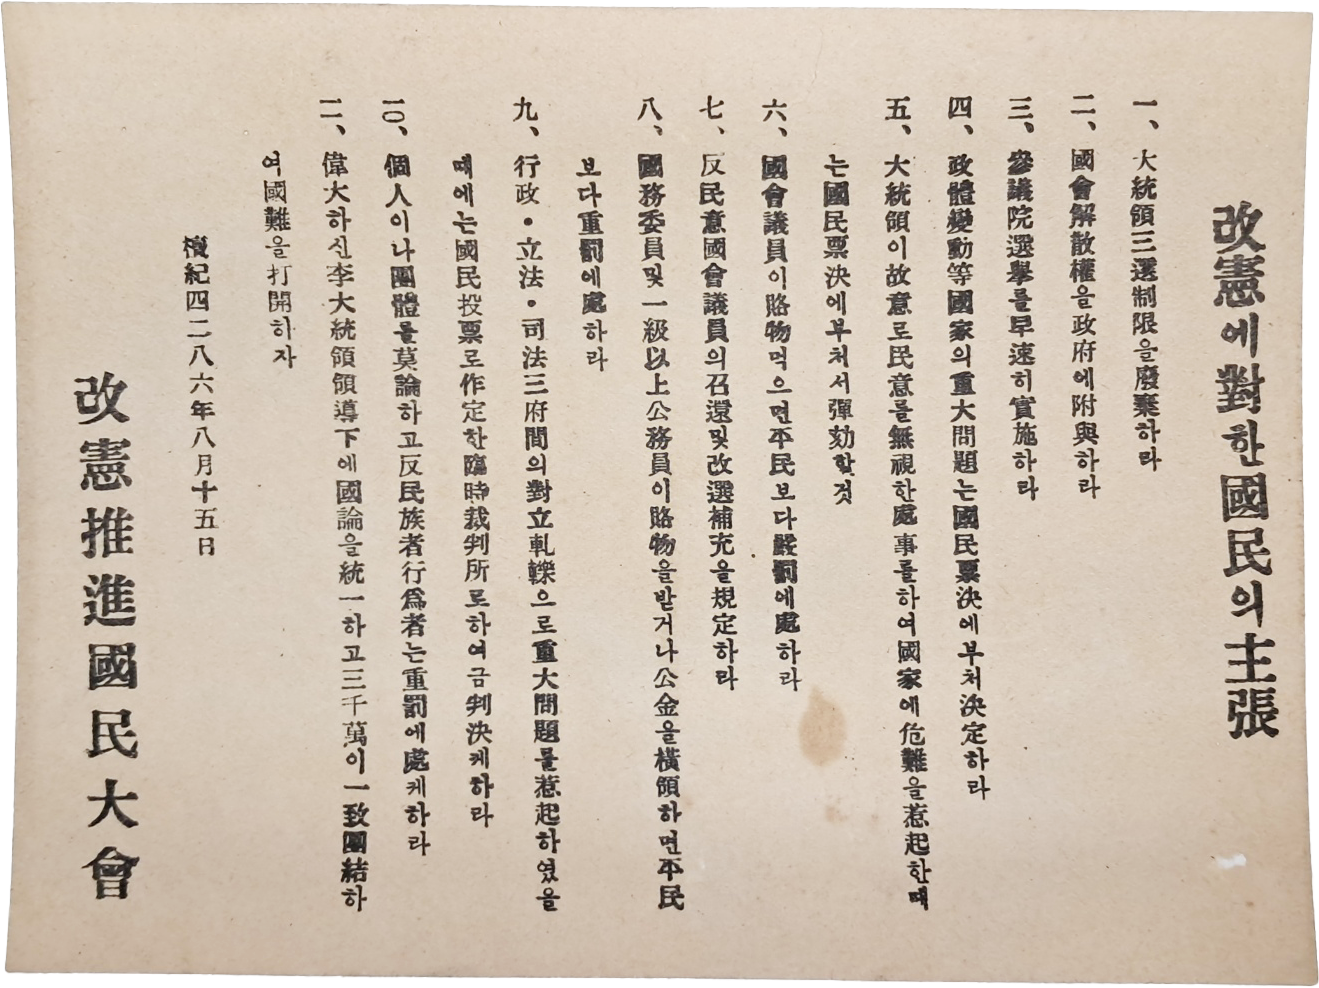 改憲에對한國民의主張
一、大統領三選制限을廢棄하라
二、國會解散權을政府에附與하라
三、參議院選擧를早速히實施하라
四、政體變動等國家의重大問題는國民票決에부처決定하라
五、大統領이故意로民意를無視한處事를하여國家에危難을惹起한때
는國民票決에부처서彈劾할것
六、國會議員이賂物먹으면平民보다嚴罰에處하라
七、反民意國會議員의召還및改選補充을規定하라
八、國務委員및一級以上公務員이賂物을받거나公金을橫領하면平民
보다重罰에處하라
九、行政・立法・司法三府間의對立軋轢으로重大問題를惹起하였을
때에는國民投票로作定한臨時裁判所로하여금判決케하라
一〇、個人이나團體를莫論하고反民族者行爲者는重罰에處케하라
二、偉大하신李大統領領導下에國論을統一하고三千萬이一致團結하
여國難을打開하자
檀紀四二八六年八月十五日
改憲推進國民大會